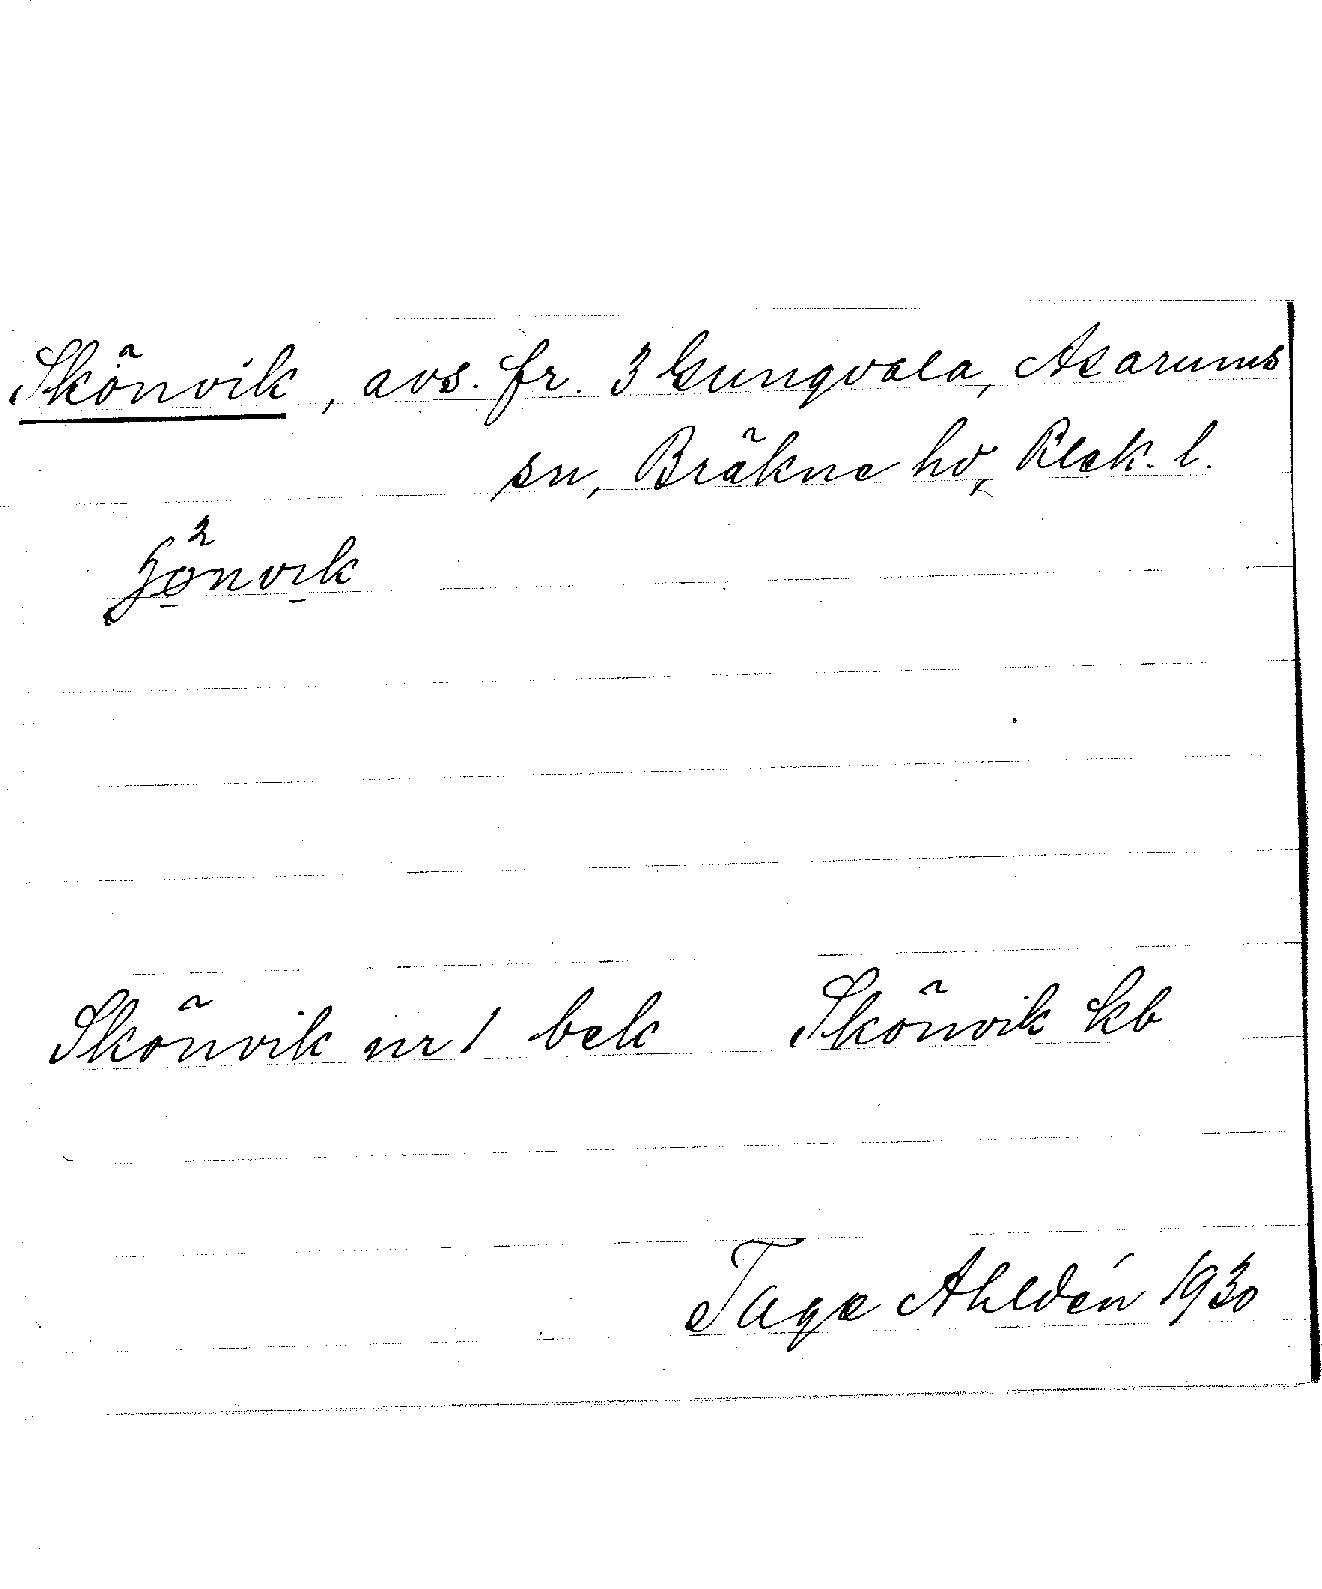 Skönvik, avs. fr. 3 Gungvala, Asarums
sn, Bräkne hd, Blek. l.
Skönvik nr 1 bek Skönvik kb
Tage Ahldén 1930